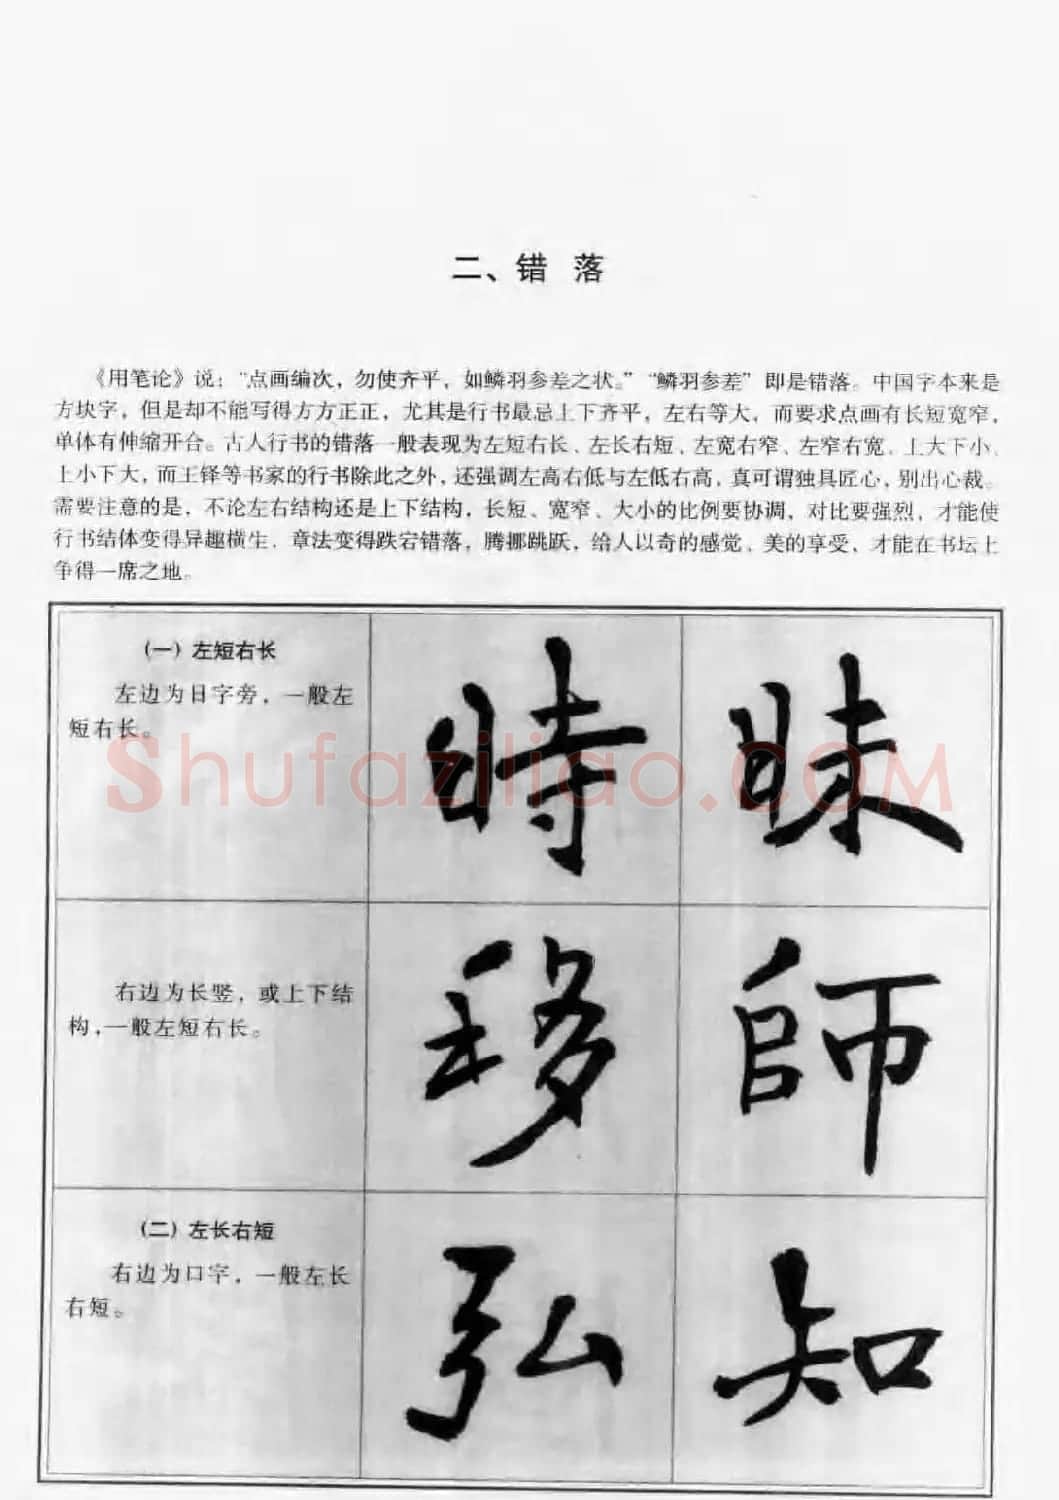 二、错 落
《用笔论》说：“点画编次，勿使齐平，如鳞羽参差之状。”“鳞羽参差”即是错落。中国字本来是
方块字，但是却不能写得方方正正，尤其是行书最忌上下齐平，左右等大，而要求点画有长短宽窄，
单体有伸缩开合。古人行书的错落一般表现为左短右长、左长右短、左宽右窄、左窄右宽、上大下小、
上小下大，而王铎等书家的行书除此之外，还强调左高右低与左低右高，真可谓独具匠心，别出心裁。
需要注意的是，不论左右结构还是上下结构，长短、宽窄、大小的比例要协调，对比要强烈，才能使
行书结体变得异趣横生，章法变得跌宕错落，腾挪跳跃，给人以奇的感觉、美的享受，才能在书坛上
争得一席之地。
（一）左短右长
左边为日字旁，一般左
短右长。
時 昧
Shufaziliao.com
右边为长竖，或上下结
构，一般左短右长。
移 師
（二）左长右短
右边为口字，一般左长
右短。
弘 知